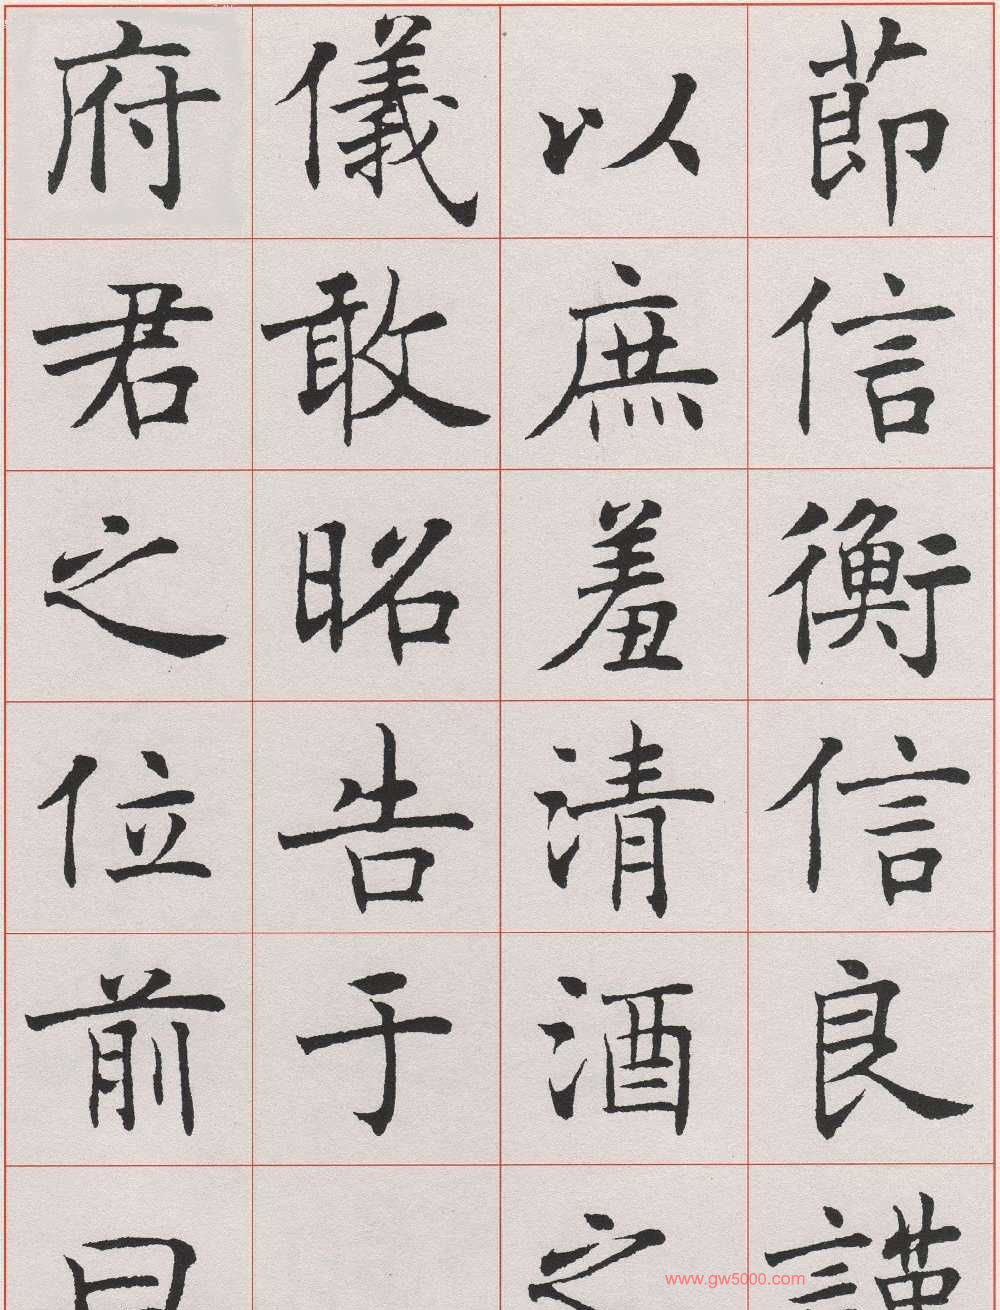 節信衡信良謹
以庶羞清酒之
儀敢昭告于
府君之位前曰
www.gw5000.com